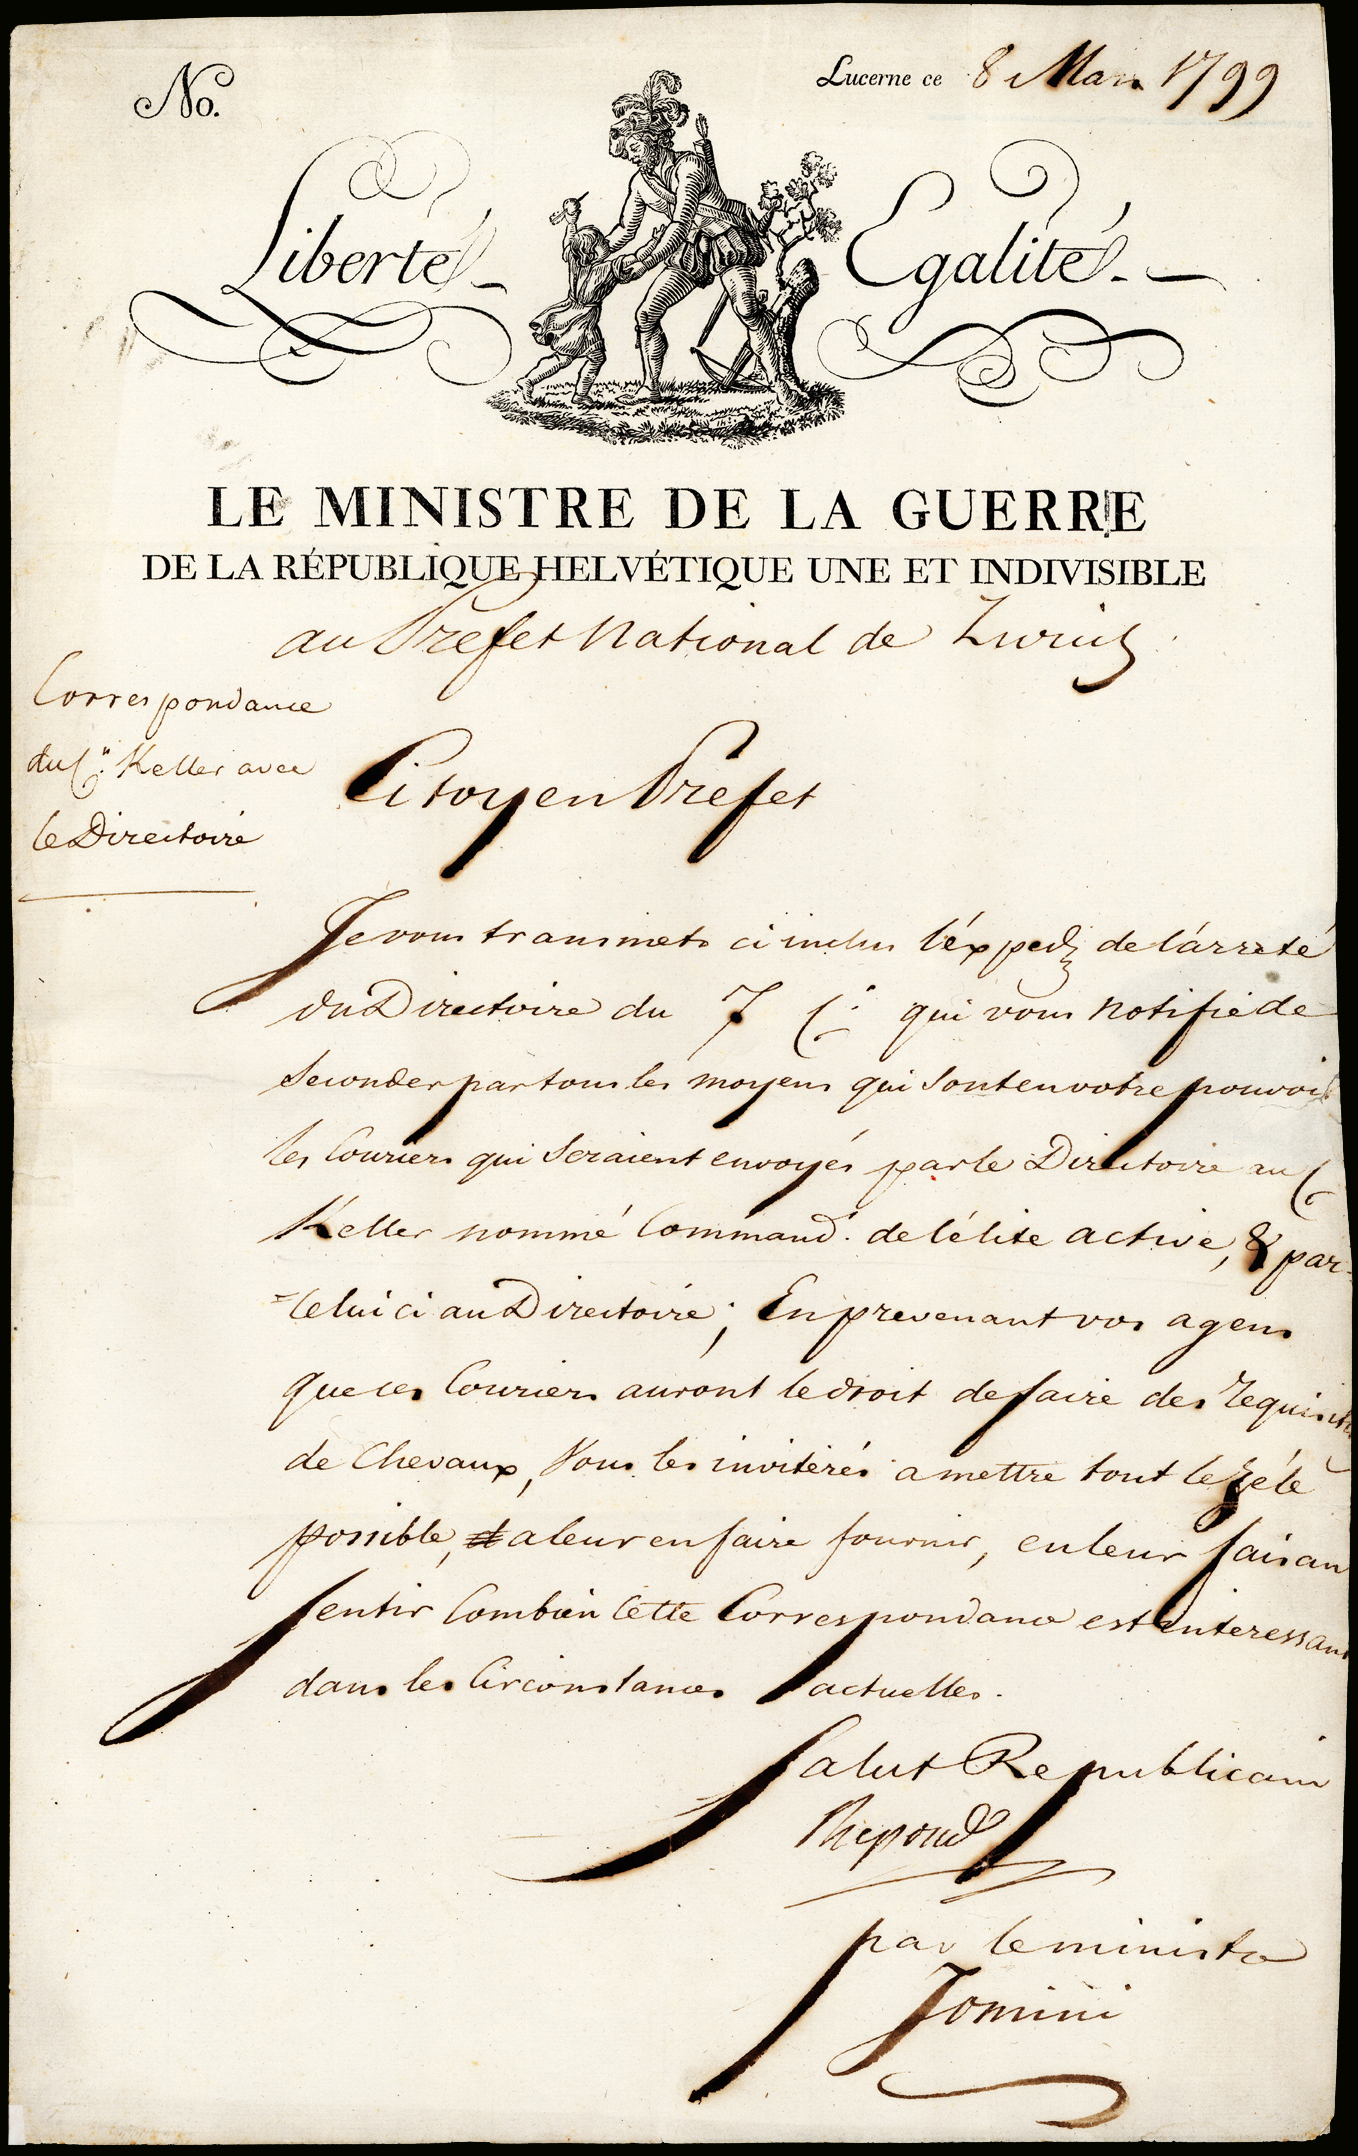 No.
Lucerne ce 8 Mars 1799
Liberté Egalité
LE MINISTRE DE LA GUERRE
DE LA RÉPUBLIQUE HELVÉTIQUE UNE ET INDIVISIBLE
au Prefet National de Zurich
Correspondance
du C.n Keller avec
le Directoire
Citoyen Prefet
Je vous transmets ci inclus l'éxped de l'árreté
du Directoire du 7 C.t qui vous notifie de
seconder par tous les moyens qui sont en votre pouvoir
les Couriers qui seraient envoyés par le Directoire au C
Keller nommé Command.t de l'élite active, & par
=celui ci au Directoire; En prevenant vos agens
que ces Couriers auront le droit de faire des requisit
de Chevaux, Vous les invitérés a mettre tout le zéle
possible, a leur en faire fournir, en leur faisan
sentir Combien Cette Correspondance est interessan
dans les Circonstances actuelles.
Salut Republicain
Repond
par le ministre
Jomini